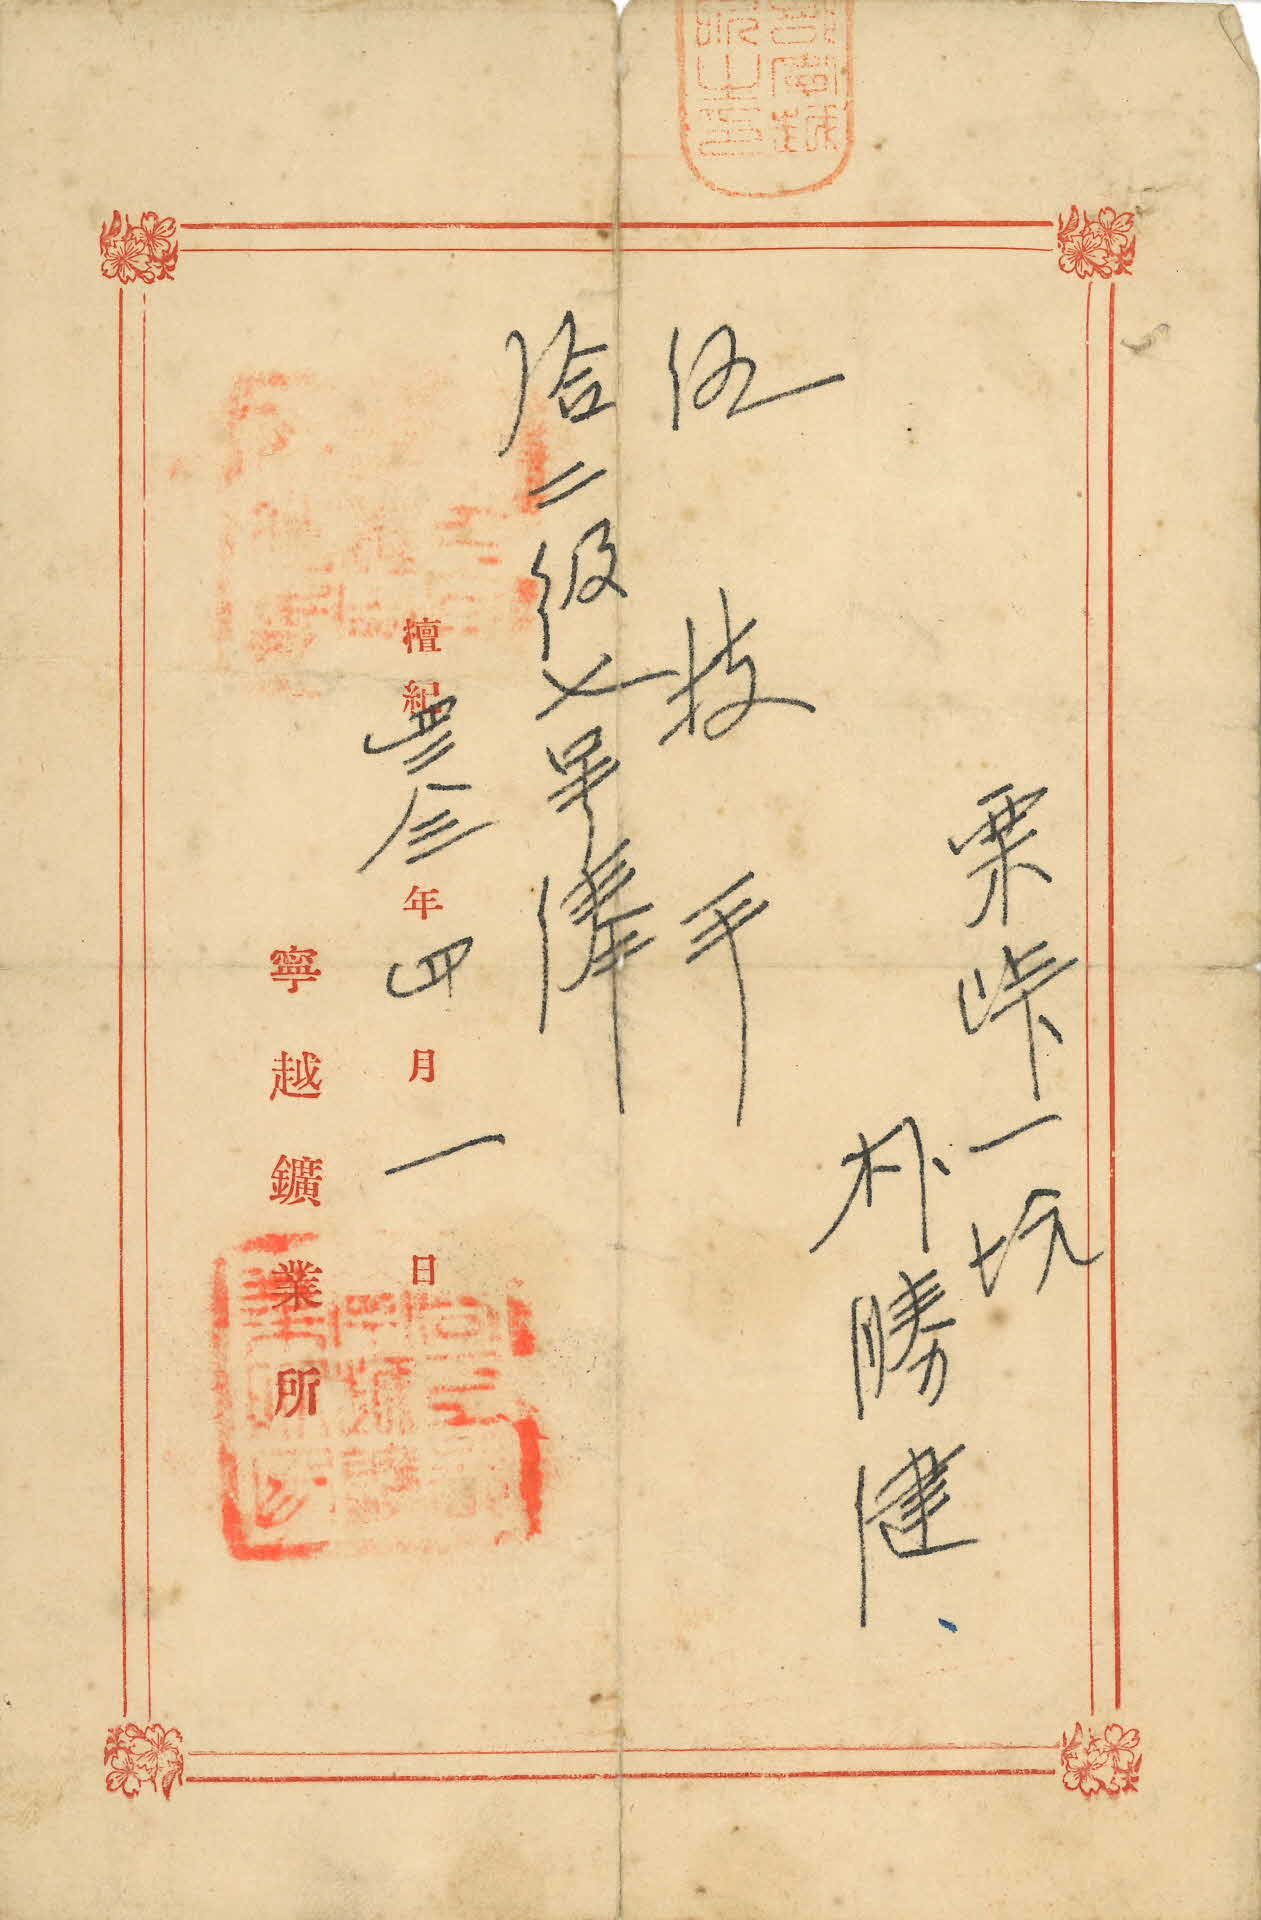 栗峠一坑
朴勝健
任技手
拾二級七号俸
檀紀四二八三年四月一日
寧越鑛業所